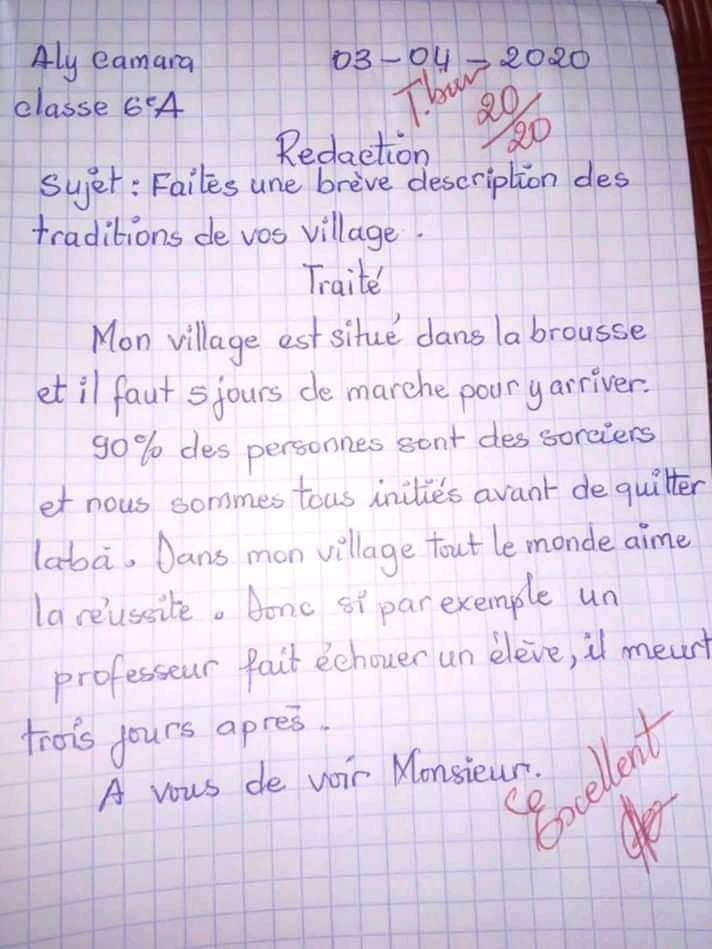 Aly Camara 03-04-2020
classe 6eA
T.bien 20/20
Redaction
Sujet: Faites une brève description des
traditions de vos village.
Traité
Mon village est situé dans la brousse
et il faut 5 jours de marche pour y arriver.
90% des personnes sont des sorciers
et nous sommes tous initiés avant de quitter
labà. Dans mon village tout le monde aime
la réussite. Donc si par exemple un
professeur fait échouer un élève, il meurt
trois jours après.
A vous de voir Monsieur.
Excellent